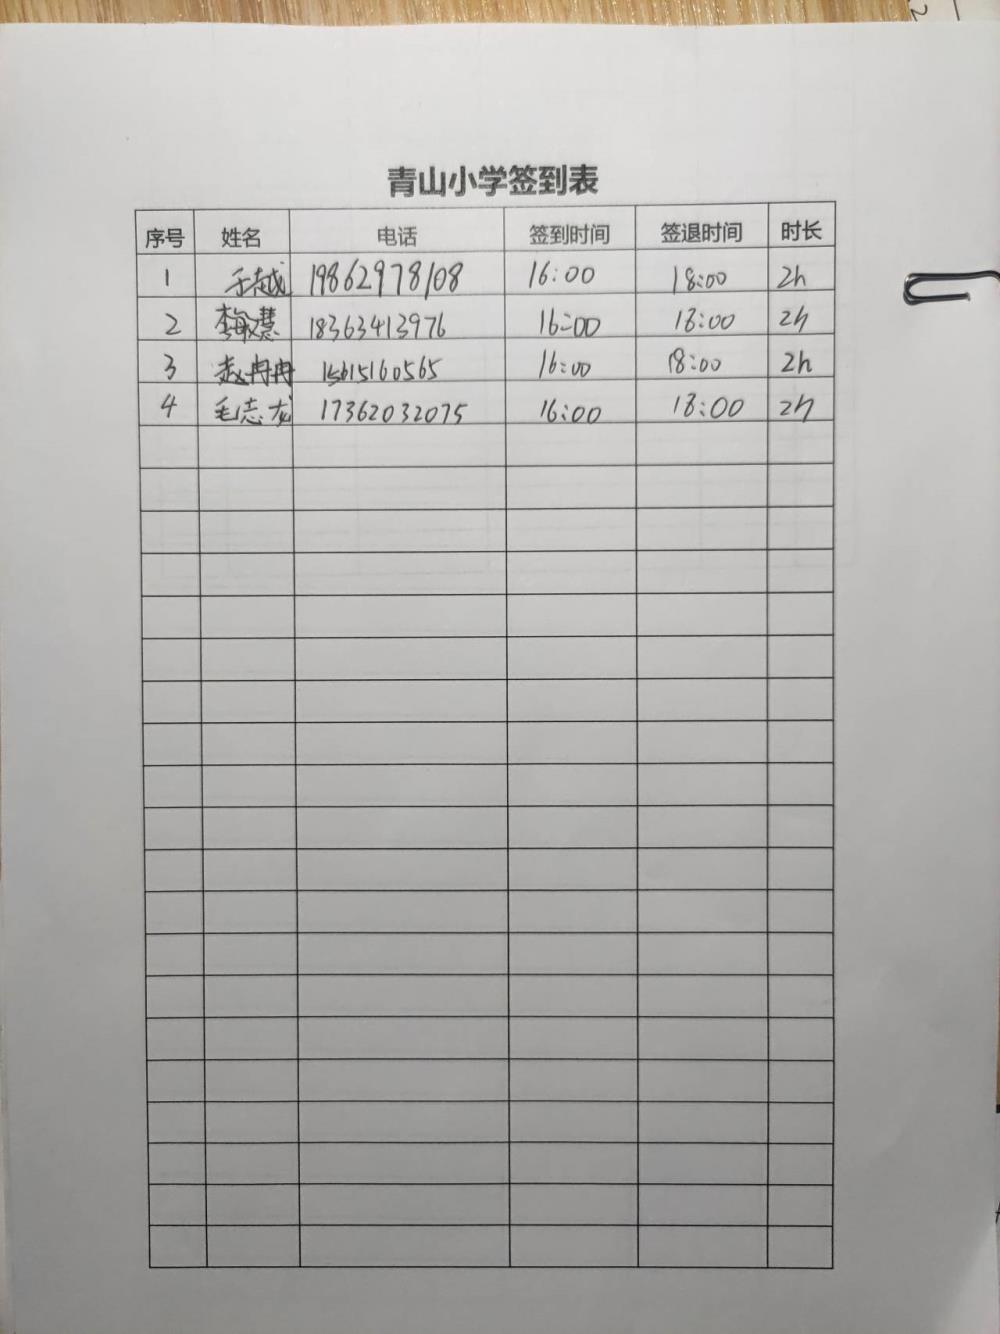 青山小学签到表
序号 姓名 电话 签到时间 签退时间 时长
1 于越 19862978108 16:00 18:00 2h
2 李敏慧 18363413976 16:00 18:00 2h
3 赵冉冉 15615160565 16:00 18:00 2h
4 毛志龙 17362032075 16:00 18:00 2h